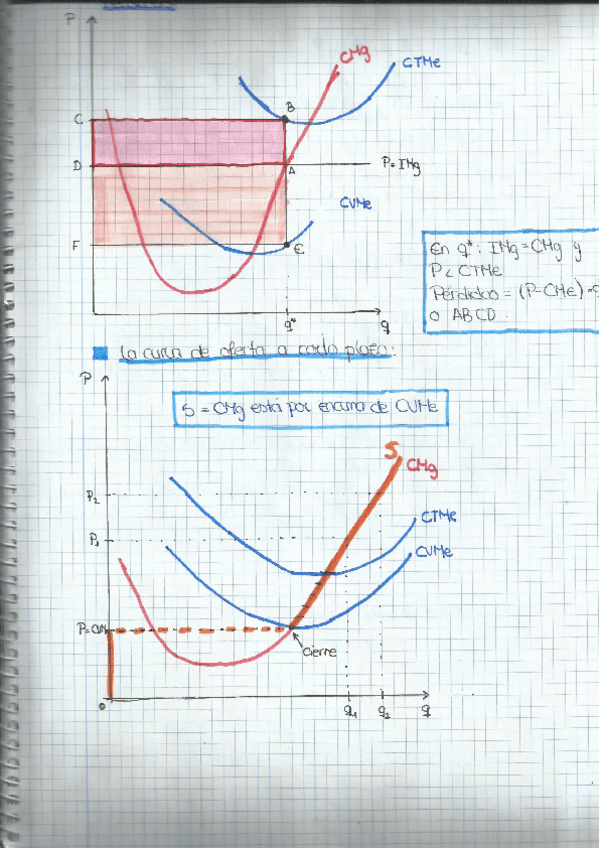 P
CMg
CTMe
C
B
D
A
P=IMg
CVMe
F
E
En q*: IMg=CMg y
P < CTMe
Pérdidas = (P-CMe)
o ABCD.
q*
q
La curva de oferta a corto plazo:
P
S = CMg está por encima de CVMe
S
CMg
P2
CTMe
P1
CVMe
P=CVM
Cierre
0
q1
q2
q